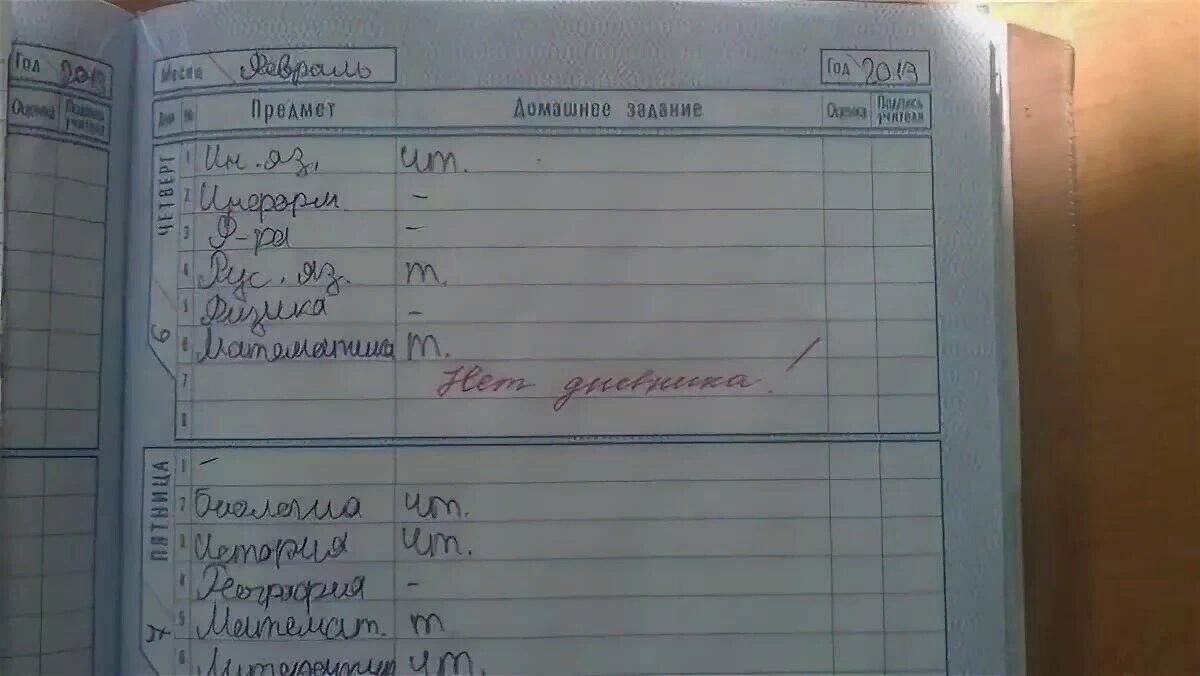 Год 2019
Оценка Подпись учителя
Месяц Февраль Год 2019
Дни № Предмет Домашнее задание Оценка Подпись учителя
ЧЕТВЕРГ
6
1 Ин. яз. чт.
2 Информ –
3 Ф-ра –
4 Рус. яз. т.
5 Физика –
6 Математика т.
7 Нет дневника!
8
ПЯТНИЦА
7
1 –
2 Биология чт.
3 История чт.
4 География –
5 Математ. т
6 Литератур чт.